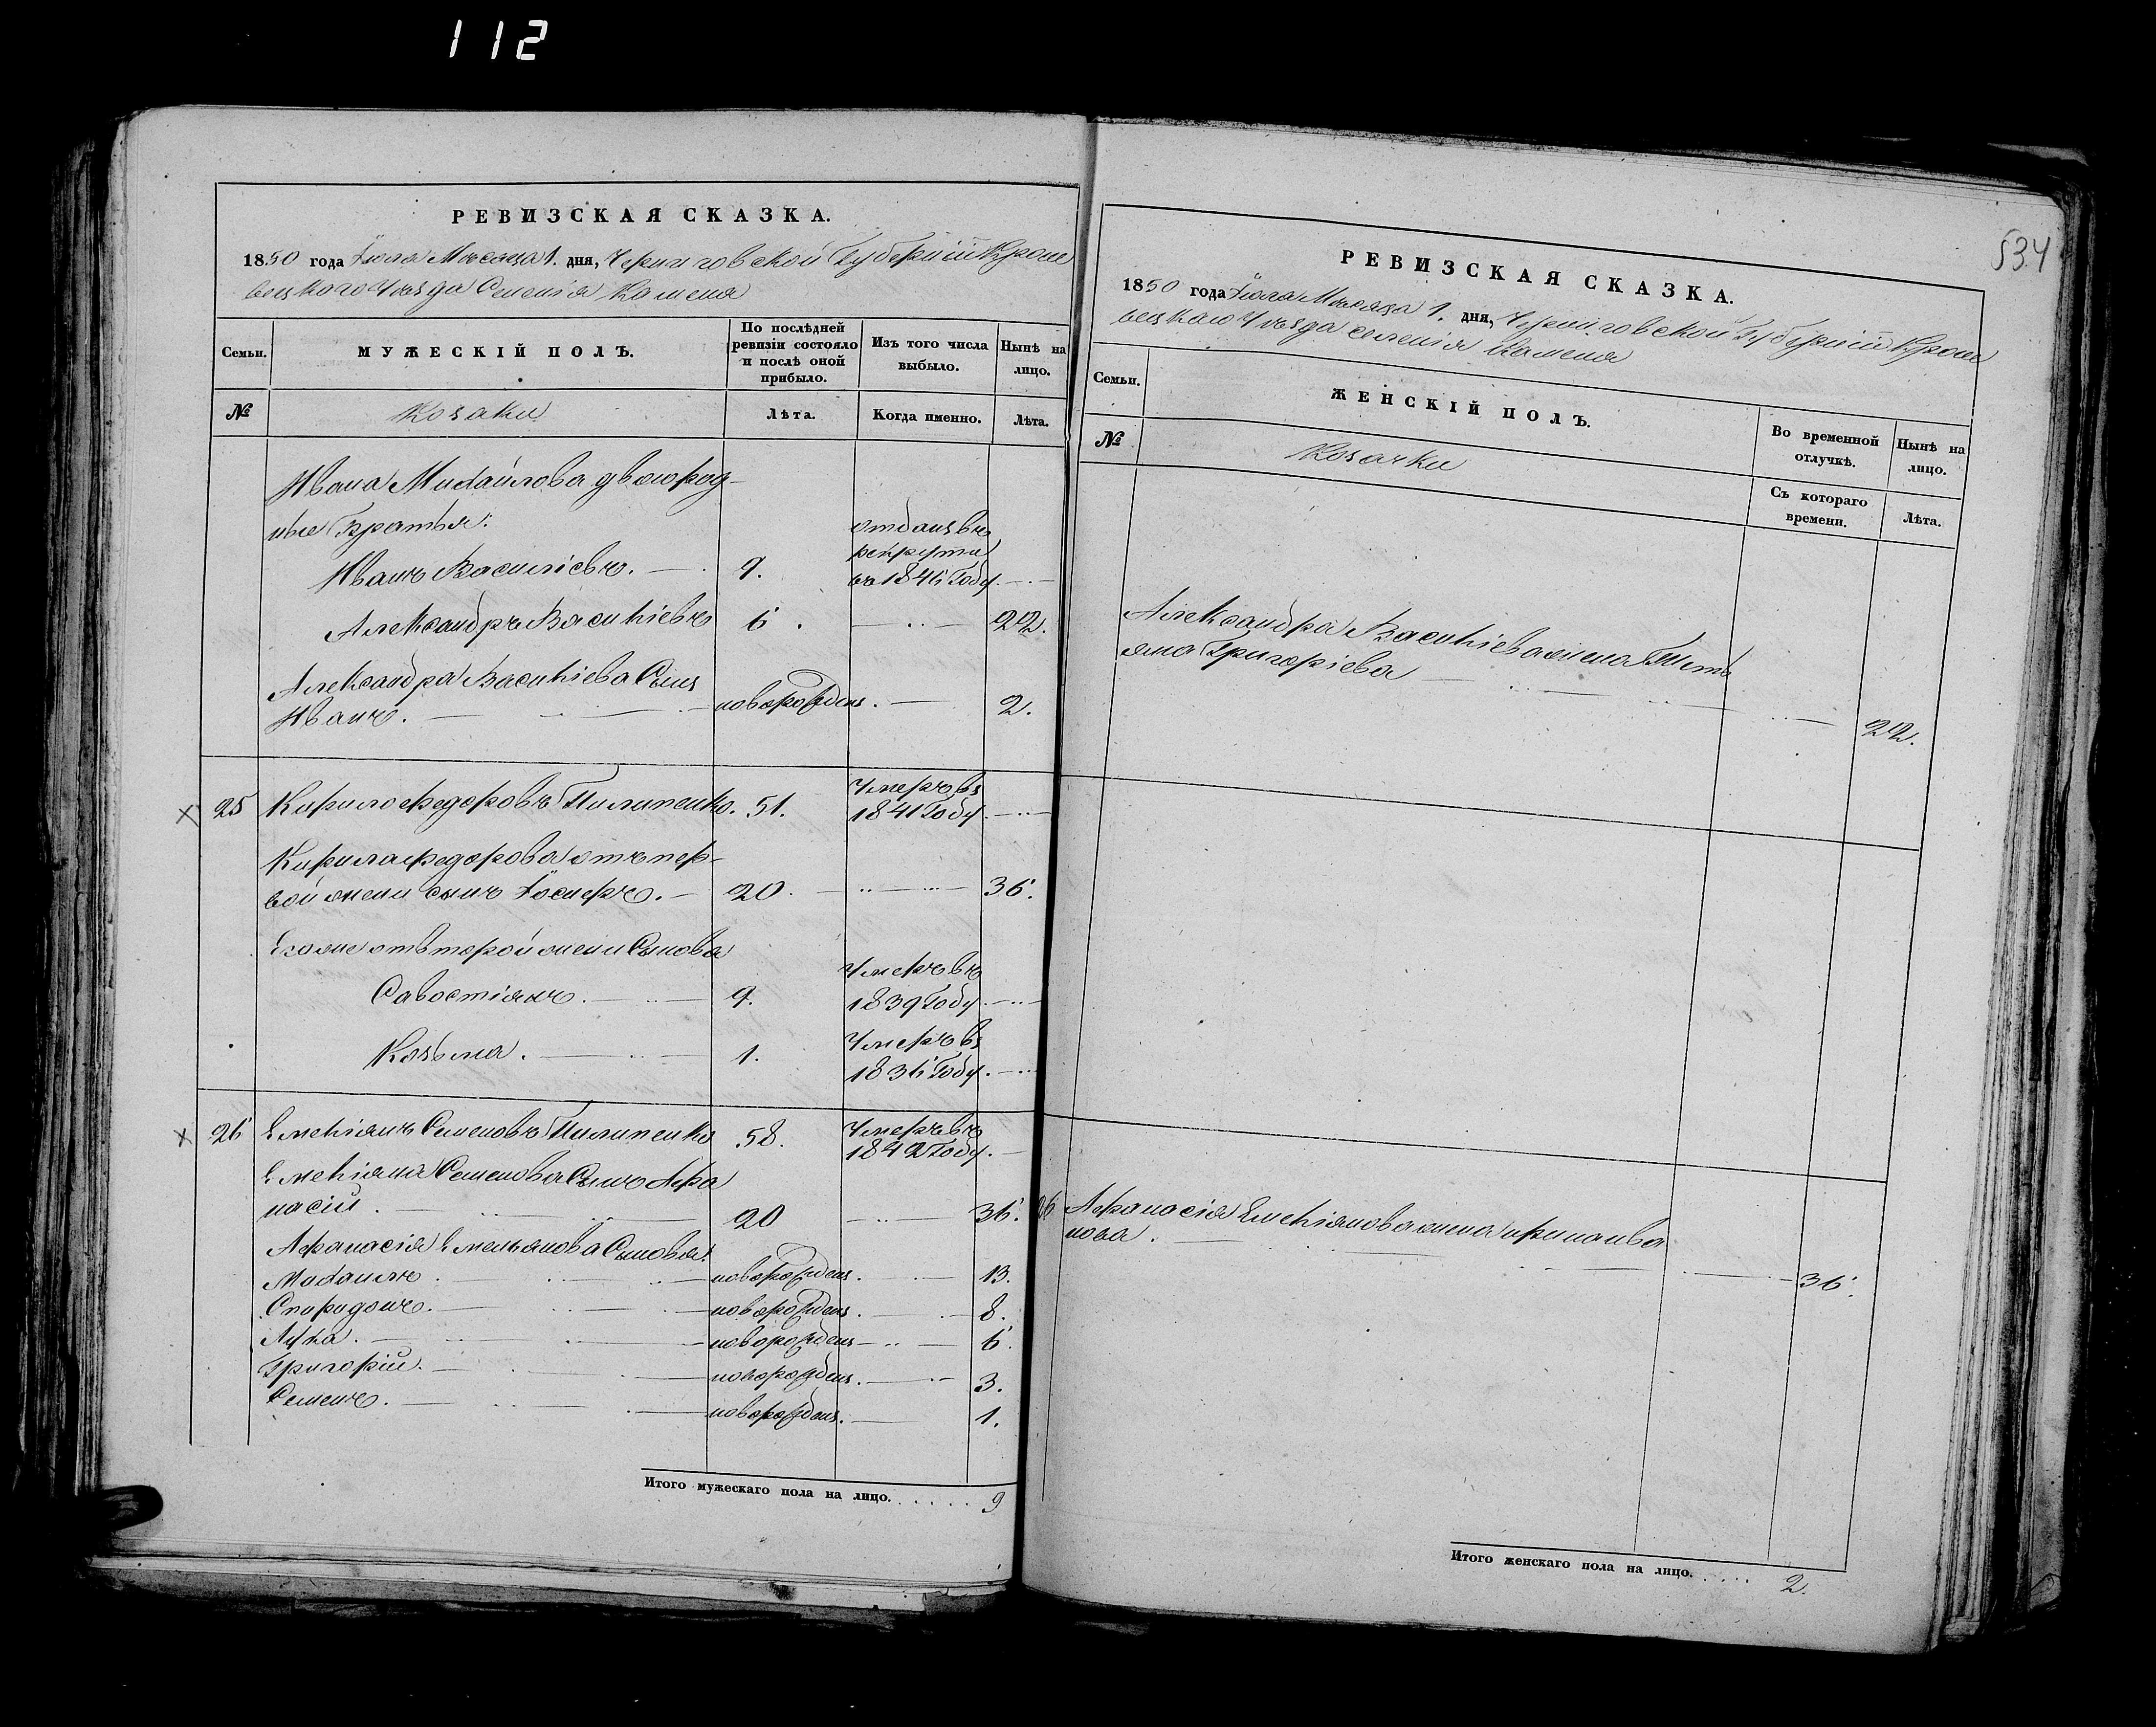 112
РЕВИЗСКАЯ СКАЗКА.
1850 года Іюля Мѣсяца 1. дня, Черниговской Губерніи Кроле
вецкого Уѣзда Селенія Каменя
Семьи.
МУЖЕСКІЙ ПОЛЪ.
По послѣдней
ревизіи состояло
и послѣ оной
прибыло.
Изъ того числа
выбыло.
Нынѣ на
лицо.
№
Козаки
Лѣта.
Когда именно.
Лѣта.
Ивана Михайлова двоюрод-
ные Братья:
Иванъ Василіевъ. 9. отданъ въ
рекруты
въ 1846 Году.
Александръ Василіевъ 6. 22.
Александра Василіева Сынъ
Иванъ. новорожденъ. 2.
25 Кирило Федоровъ Пилипенко. 51. Умеръ въ
1841 Году.
Кирила Федорова отъ пер-
вой жены сынъ Іосифъ. 20. 36.
Егоже отъ второй жены Сынова
Савостіянъ. 9. Умеръ въ
1839 Году.
Козьма. 1. Умеръ въ
1836 Году.
26 Емеліянъ Семеновъ Пилипенко 58. Умеръ въ
1842 Году.
Емеліяна Семенова Сынъ Афа
насій. 20 36.
Афанасія Емельянова Сыновья:
Михаилъ. новорожденъ. 13.
Спиридонъ. новорожденъ. 8.
Лука. новорожденъ 6.
Григорій. новорожденъ. 3.
Семенъ. новорожденъ. 1.
Итого мужескаго пола на лицо. 9
534
РЕВИЗСКАЯ СКАЗКА.
1850 года Іюля Мѣсяца 1. дня, Черниговской Губерніи Кроле
вецкаго Уѣзда селенія Каменя
Семьи.
ЖЕНСКІЙ ПОЛЪ.
Во временной
отлучкѣ.
Нынѣ на
лицо.
№
Козачки
Съ котораго
времени.
Лѣта.
Александра Василіева жена Тать
яна Григоріева 22.
26 Афанасія Емеліянова жена Ирина Ива
нова. 36.
Итого женскаго пола на лицо. 2.